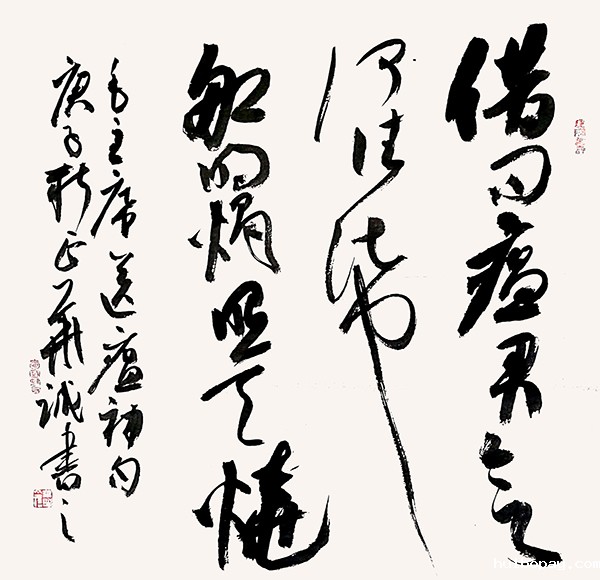 借问瘟君欲
何往纸
船明烛照天烧
毛主席送瘟神句
庚子新正华诚书之